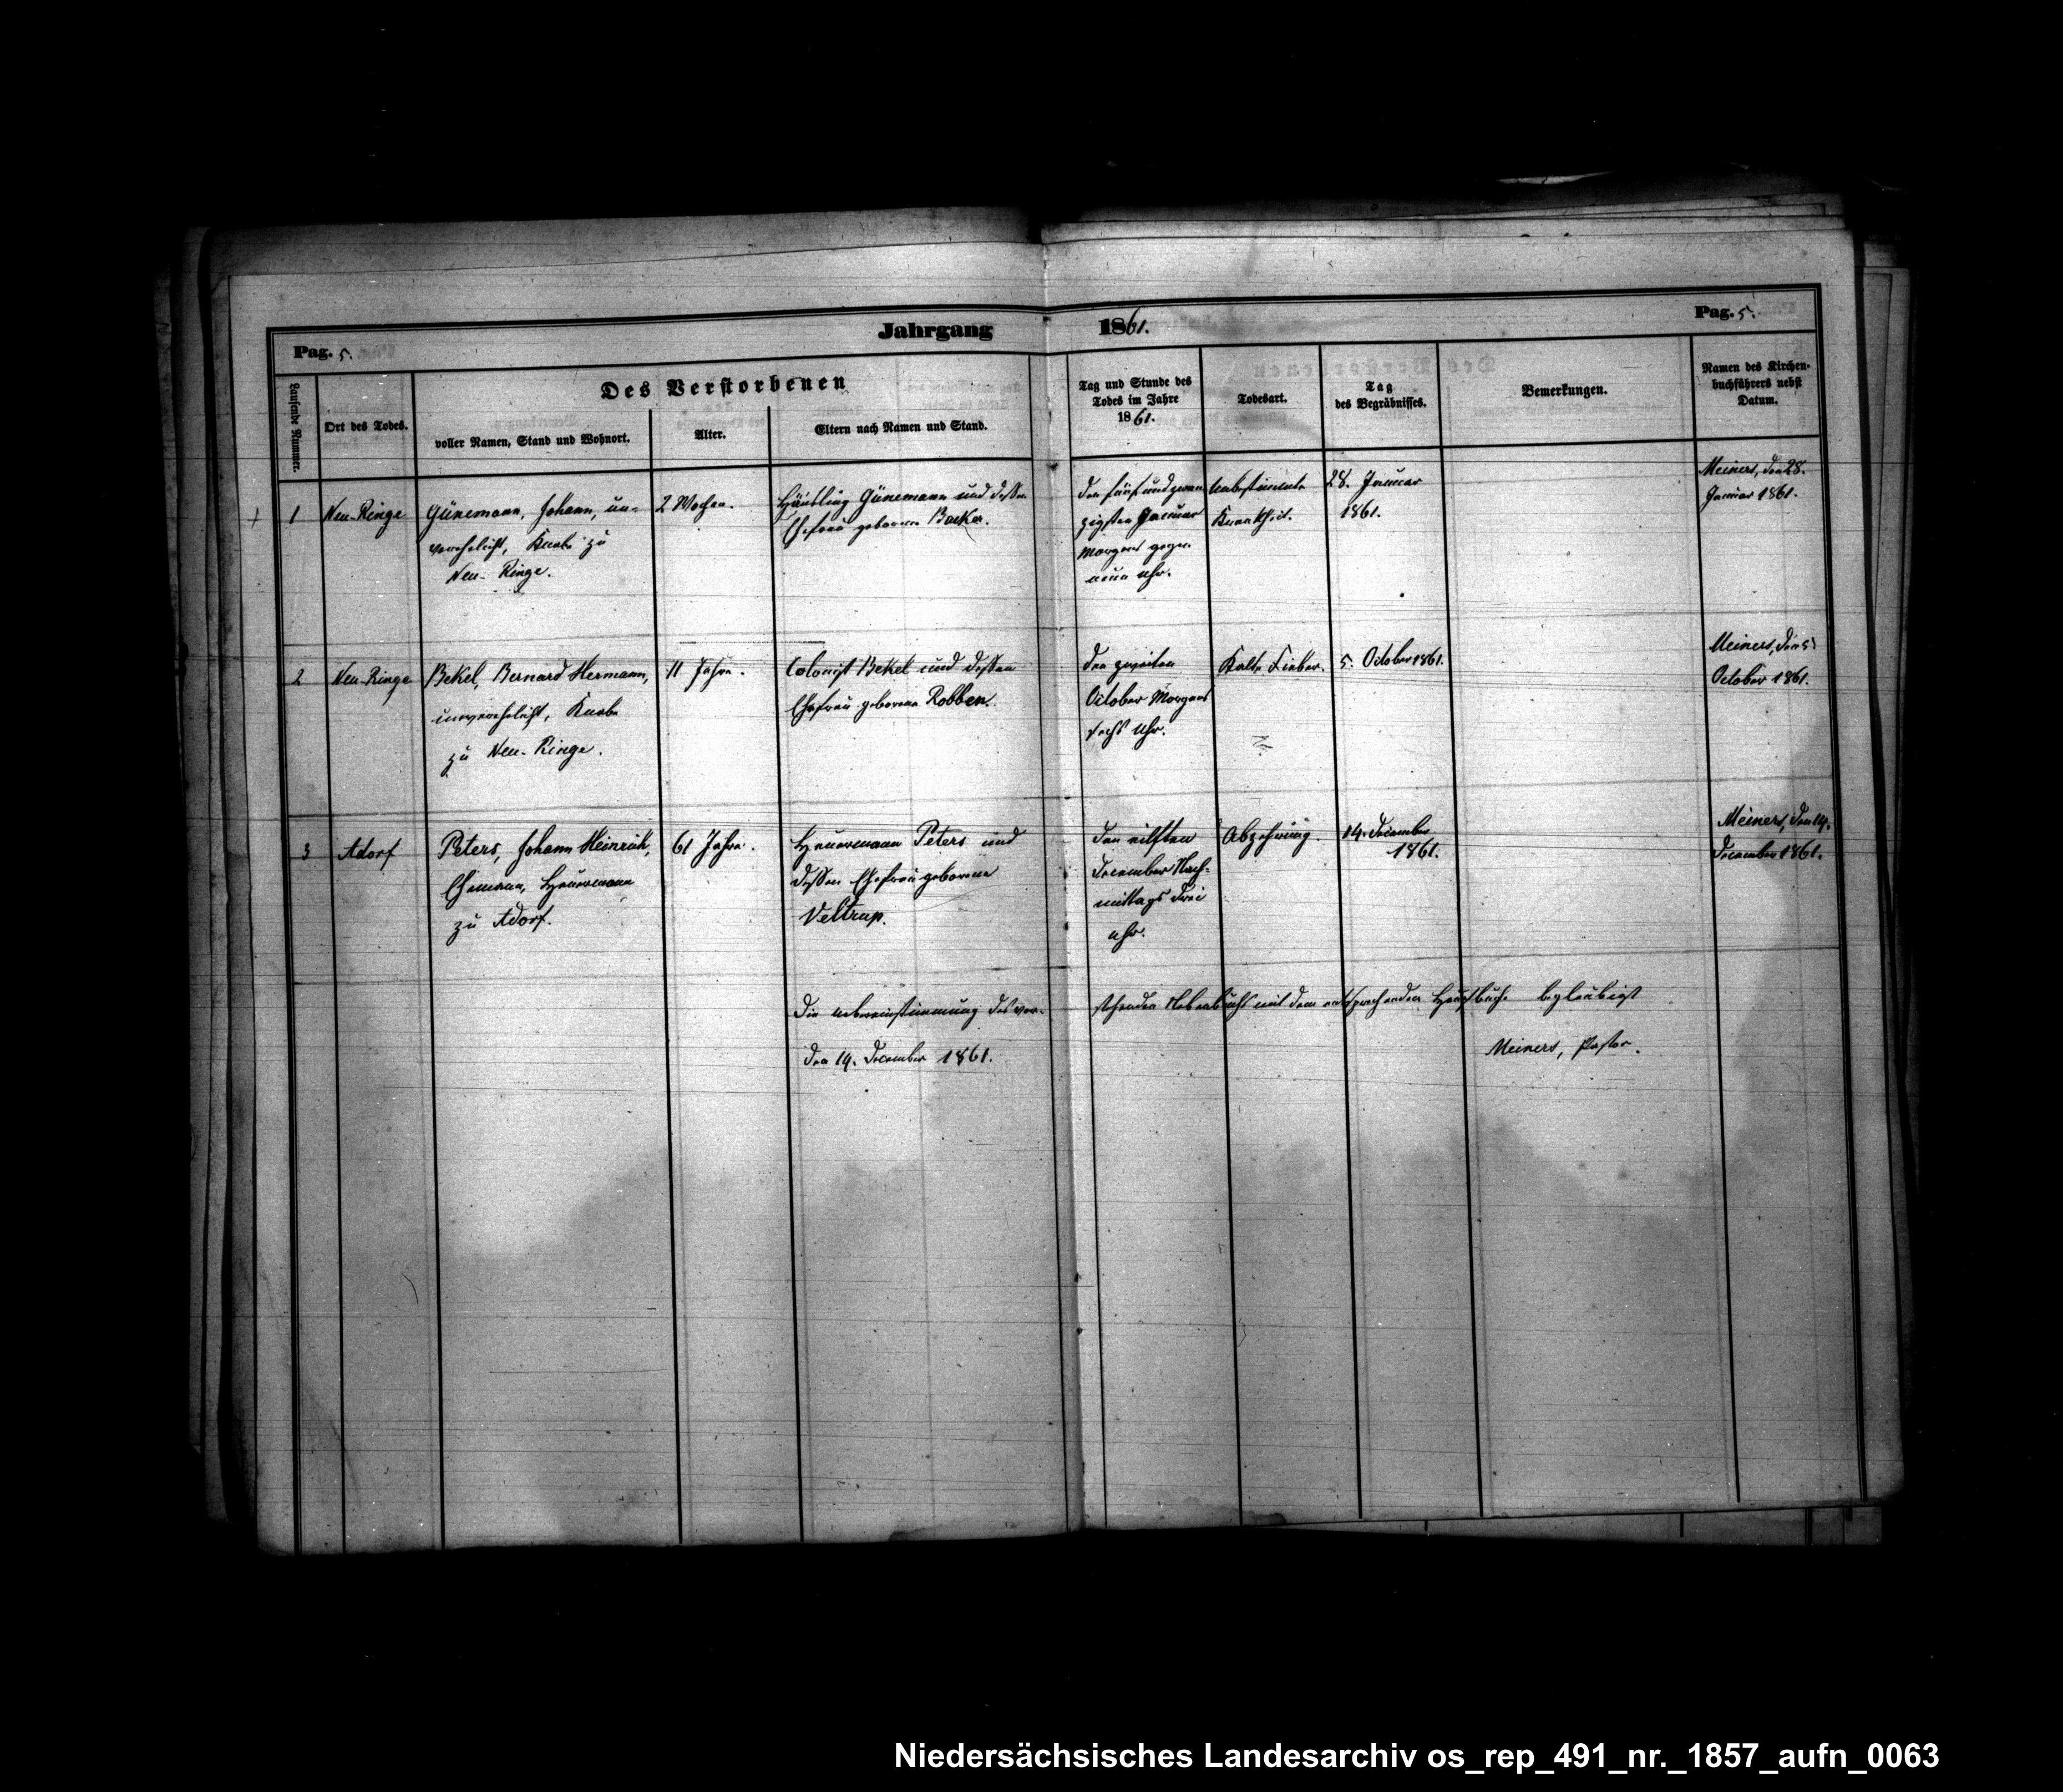 Jahrgang 1861.
Pag. 5.
Pag. 5.
Laufende Nummer.
Ort des Todes.
Des Verstorbenen
voller Namen, Stand und Wohnort.
Alter.
Eltern nach Namen und Stand.
Tag und Stunde des
Todes im Jahre
1861.
Todesart.
Tag
des Begräbnisses.
Bemerkungen.
Namen des Kirchen-
buchführers nebst
Datum.
1
Neu-Ringe
Günemann, Johann, un-
verehelicht, Knabe zu
Neu-Ringe.
2 Wochen.
Häusling Günemann und dessen
Ehefrau geborene
den fünfundzwan
zigsten Januar
Morgens gegen
neun Uhr.
Unbestimmte
Krankheit.
28. Januar
1861.
Meiners, den 28.
Januar 1861.
2
Neu-Ringe
Bekel, Bernard Hermann,
unverehelicht, Knabe
zu Neu-Ringe.
11 Jahre.
Colonist Bekel und dessen
Ehefrau geborene Robben.
den zweiten
October Morgens
sechs Uhr.
Kalte Fieber.
5. October 1861.
Meiners, den 5.
October 1861.
3
Adorf
Peters, Johann Heinrich,
Ehemann, Heuermann
zu Adorf.
61 Jahre.
Heuermann Peters und
dessen Ehefrau geborene
Veltrup.
den eilften
December Nach-
mittags drei
Uhr.
Abzehrung.
14. December
1861.
Meiners, den 14.
December 1861.
Die Uebereinstimmung des vor-
stehenden Nebenbuchs mit dem entsprechenden Hauptbuche beglaubigt
den 14. December 1861.
Meiners, Pastor.
Niedersächsisches Landesarchiv os_rep_491_nr._1857_aufn_0063